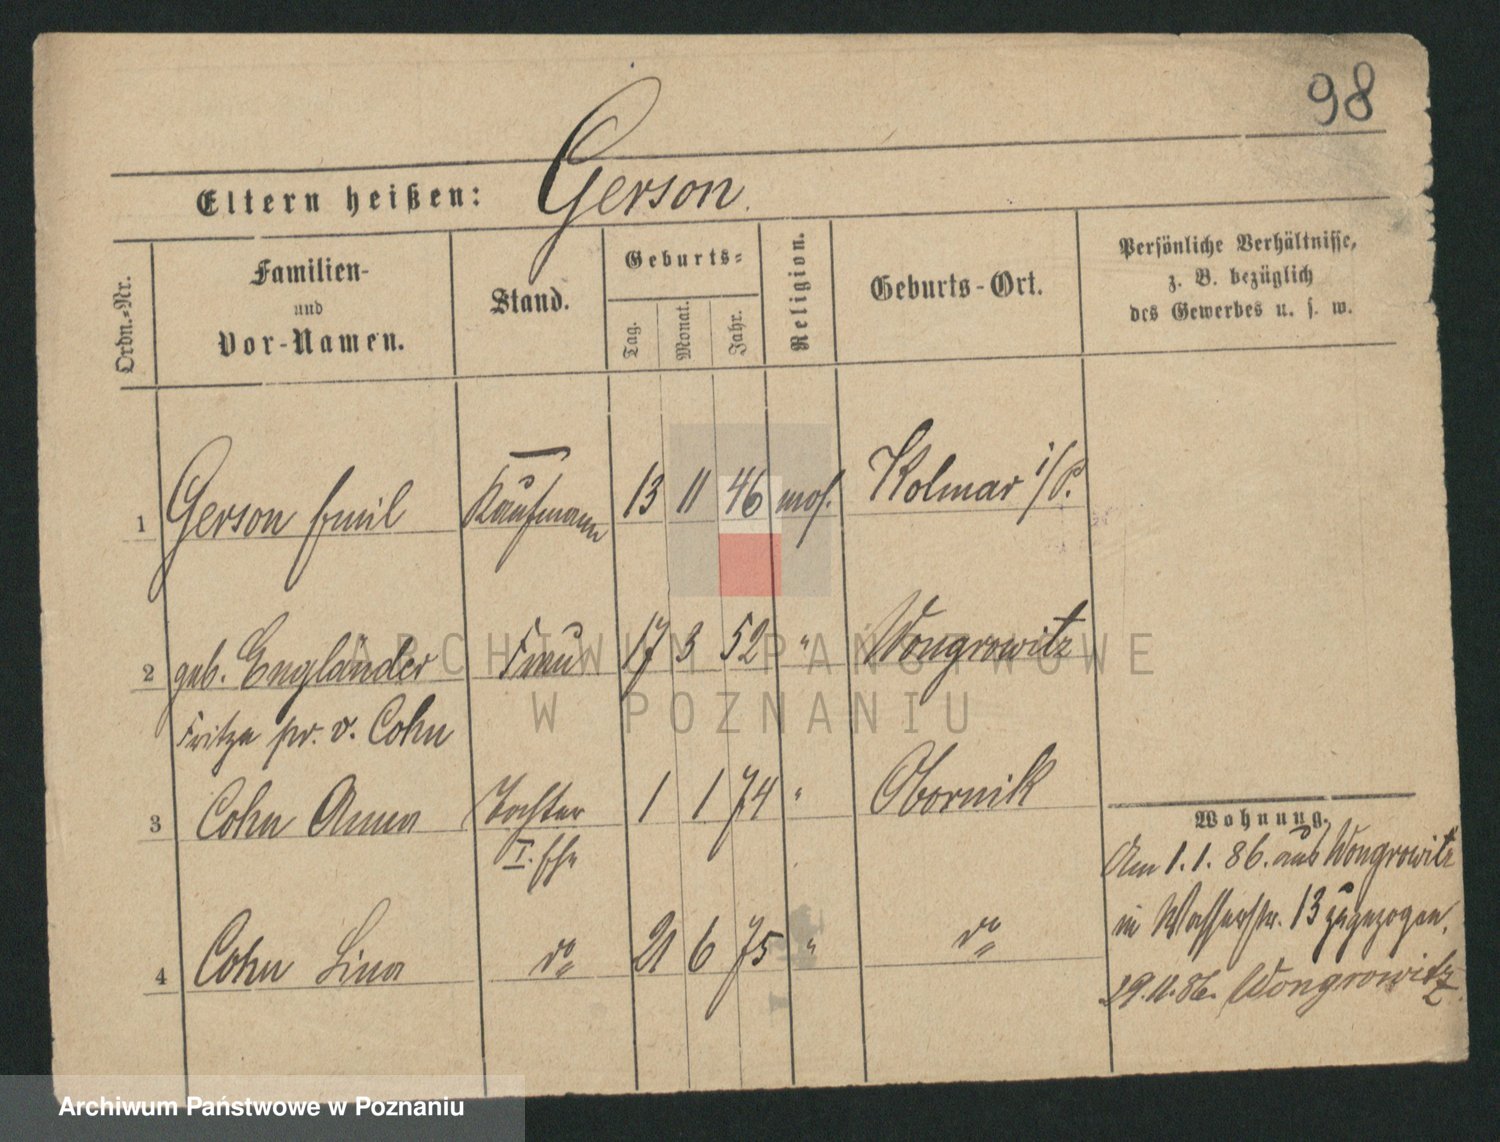 98
Eltern heißen: Gerson.
Ordn.-Nr.
Familien-
und
Vor-Namen.
Stand.
Geburts-
Tag.
Monat.
Jahr.
Religion.
Geburts-Ort.
Persönliche Verhältnisse,
z. B. bezüglich
des Gewerbes u. s. w.
1 Gerson Emil Kaufmann 13 11 46 mos. Kolmar i/P.
2 geb. Engländer Frau 17 3 52 " Wongrowitz
pr. v. Cohn
3 Cohn Anna Tochter 1 1 74 " Obornik
I. Ehe
4 Cohn Lina do 21 6 75 " do
Wohnung.
Am 1.1.86. aus Wongrowitz
in Wasserstr. 13 zugezogen.
29.11.86. Wongrowitz
ARCHIWUM PAŃSTWOWE
W POZNANIU
Archiwum Państwowe w Poznaniu